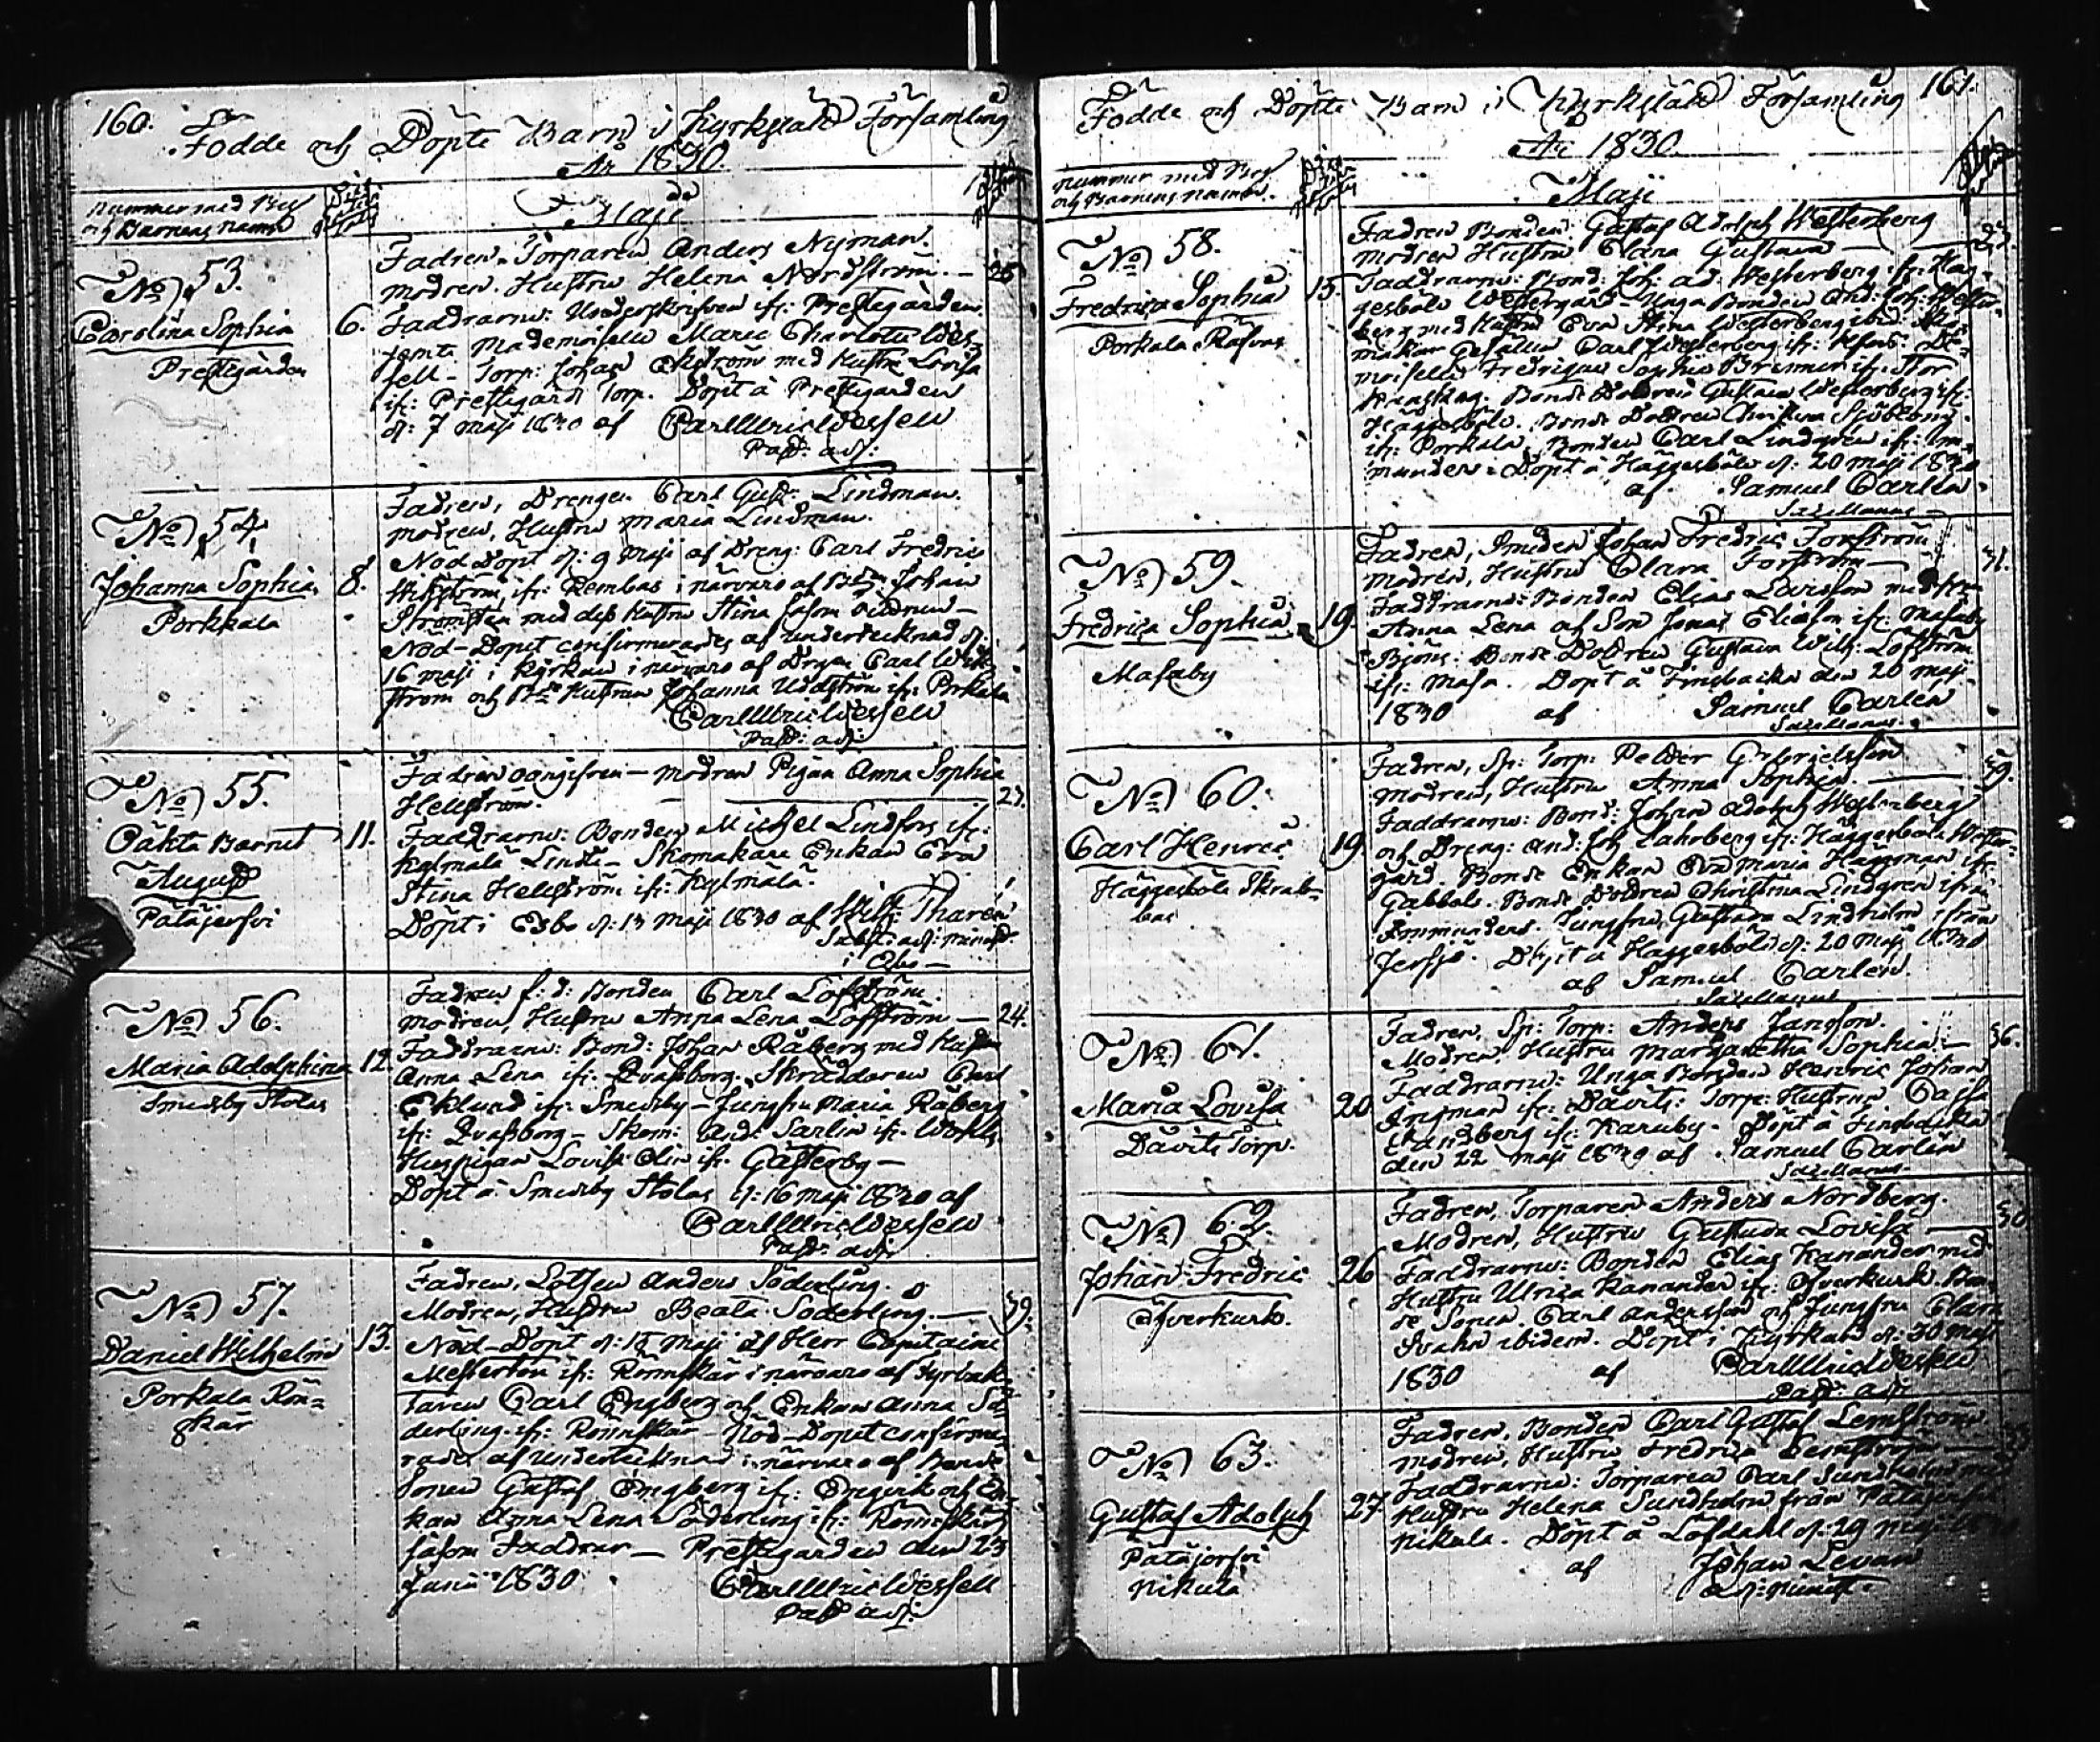 160.
Födde och Döpte Barn i Kyrkslätt Församling
År 1830.
nummer med Byn
och Barnens namn
Maji
No 53.
Carolina Sophia
Prestegården
6.
Fadren, Torparen Anders Nyman.
modren, Hustru Helena Nordström. — 25
Faddrarne: Underskrifven ifr: Prestegården
jemte Mademoiselle Marie Charlotte Wes-
sell - Torp: Johan Ekström med Hustru Lovisa
ifr: Prestegårds Torp. Döpt å Prestegården
d: 7 maji 1830 af Carl Ulric Wessell
Past: adj:
No 54.
Johanna Sophia
Porkkala
8.
Fadren, Drengen Carl Gust: Lindman.
modren, Hustru Maria Lindman.
Nöd Döpt d: 9 Maji af Dreng: Carl Fredric
Wikström, ifr: Rembas i närvaro af Johan
Strömsten med dess Hustru Stina såsom vittnen —
Nöd-Dopet confirmerades af undertecknad d:
16 maji i kyrkan i närvaro af Drgen Carl Wik
ström och Hustrun Johanna Uddström ifr: Porkala
Carl Ulric Wessell
Past: adj:
No 55.
Oäkta Barnet
August
Patajerfvi
11.
Fadren oangifven — modren Pigan Anna Sophia
Hellström. — 23.
Faddrarne: Bonden Michel Lindfors ifr:
Kylmälä Linds - Skomakare Enkan Eva
Stina Hellström ifr: Kylmälä.
Döpt i Esbo d: 13 Maji 1830 af Wilh: Tharén
i Esbo —
No 56.
Maria Adolphina
Smedsby Stolas
12.
Fadren f: d: Bonden Carl Löfström.
modren, Hustru Anna Lena Löfström — 24.
Faddrarne: Bond: Johan Råberg med Hustru
Anna Lena ifr: Evassborg. Skräddaren Carl
Eklund ifr: Smedsby - Jungfru Maria Råberg
ifr: Evassborg - Skom: And: Sarlin ifr:
Lovisa Elin ifr: Gästerby —
Döpt å Smedsby Stolas d: 16 maji 1830 af
Carl Ulric Wessell
Past: adj:
No 57.
Daniel Wilhelm
Porkala Rön-
skär
13.
Fadren, Lotsen Anders Söderling.
Modren, Hustru Beata Söderling — 39.
Nöd-Döpt d: Maji af Herr Capitaine
Mesterton ifr: Rönnskär i närvaro af Fyrvak-
taren Carl Engberg och Enkan Anna Sö-
derling ifr: Rönnskär - Nöd-Dopet confirme-
rades af undertecknad i närvaro af Bonde
Sonen Gustaf Engberg ifr: och En-
kan Anna Lena Söderling ifr: Rönnskär
såsom Faddrar — Prestegården den 23
Junii 1830 Carl Ulric Wessell
Past: adj:
161.
Födde och Döpte Barn i Kyrkslätt Församling
År 1830.
nummer med Byn
och Barnens namn.
Maji
No 58.
Fredrica Sophia
Porkala Räfvas
15.
Fadren Bonden Gustaf Adolph Westerberg
modren Hustru Clara Gustava —
Faddrarne: Bond: Joh: Ad: Westerberg ifr: Häg-
gesböle Westergård Unga Bonden And: Joh: Wester-
berg med Hustru Eva Stina Westerberg ibid: Sko-
makar Gesällen Carl Westerberg ifr: Hfors: De-
moiselle Fredrique Sophie Brenner ifr: Stor
Bonde Dottren Gustava Westerberg ifr:
Häggesböle. Bonde Dottren Christina Sjöblom
ifr: Porkala. Bonden Carl Lindgren ifr: Im-
munders. Döpt å Häggesböle d: 20 maji 1830
af Samuel Carlen
Sacellanus —
No 59.
Fredrica Sophia
Masaby
19.
Fadren, Smeden Johan Fredric Forsström
modren, Hustru Clara Forsström — 31.
Faddrarne: Bonden Elias Larsson med hu-
Anna Lena och Son Jonas Eliasson ifr: Masaby
Bjöns: Bonde Dottren Gustava Wilh: Löfström
ifr: Masa. Döpt å Finsbacka den 20 maji
1830 af Samuel Carlen
Sacellanus
No 60.
Carl Henric
Häggesböle Skrab-
bas
19.
Fadren, Sp: Torp: Petter Gabrielsson
modren, Hustru Anna Sophia. — 39.
Faddrarne: Bond: Johan Adolph Westerberg
och Dreng: And: Joh ifr: Häggesböle Wester-
gård. Bonde Enkan Eva Maria Häggman ifr:
Gabbols. Bonde Dottren Christina Lindgren ifrån
Immunders. Jungfru Gustava Lindholm ifrån
Jerfsö. Döpt å Häggesböle d: 20 maji 1830
af Samuel Carlen.
Sacellanus
No 61.
Maria Lovisa
Davits Torp.
20
Fadren, Sp: Torp: Anders Jansson.
Modren, Hustru Margaretha Sophia — 36.
Faddrarne: Unga Bonden Henric Johan
Ingman ifr: Davits: Torp: Hustrun Cajsa
Sandberg ifr: Karuby. Döpt å Finsbacka
den 22 maji 1830 af Samuel Carlén
Sacellanus
No 62.
Johan Fredric
Öfverkurk.
26
Fadren, Torparen Anders Nordberg.
Modren, Hustru Gustava Lovisa — 30
Faddrarne: Bonden Elias Kanander med
Hustru Ulrica Kanander ifr: Öfverkurk. Bon-
de Sonen Carl Andersson och Jungfru Clara
Svahn ibidem. Döpt i Kyrkan d: 30 Maji
1830 af Carl Ulric Wessell
Past: adj:
No 63.
Gustaf Adolph
Patajerfvi
Nikula
27
Fadren, Bonden Carl Gustaf Lemström
modren, Hustru Fredrica Lemström —
Faddrarne: Torparen Carl Sundholm med
Hustru Helena Sundholm från Patajerfvi
Nikula. Döpt å Löfdahl d: 29 Maji 1830
af Johan Levan